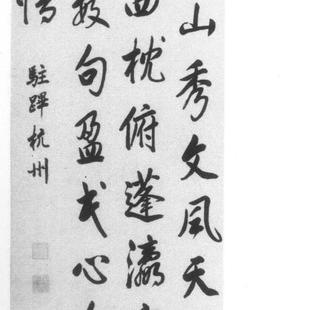 山秀文風天
枕俯蓬瀛
句盈心
駐蹕杭州